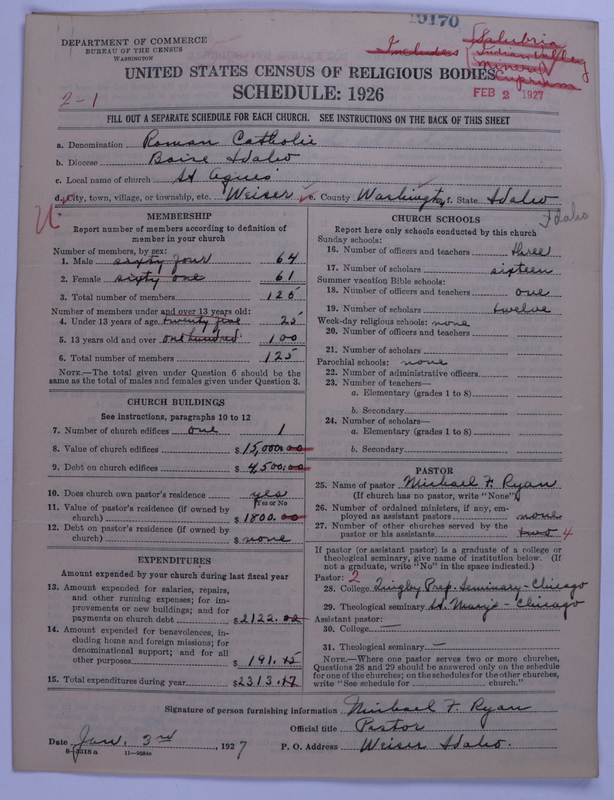 19170
DEPARTMENT OF COMMERCE
BUREAU OF THE CENSUS
WASHINGTON
Includes Salubria
Indian Valley
Mineral
Cuprum
UNITED STATES CENSUS OF RELIGIOUS BODIES
SCHEDULE: 1926
FEB 2 1927
2-1
FILL OUT A SEPARATE SCHEDULE FOR EACH CHURCH. SEE INSTRUCTIONS ON THE BACK OF THIS SHEET
a. Denomination Roman Catholic
b. Diocese Boise Idaho
c. Local name of church St Agnes
d. City, town, village, or township, etc. Weiser e. County Washington f. State Idaho
Idaho
MEMBERSHIP
Report number of members according to definition of
member in your church
Number of members, by sex:
1. Male sixty four 64
2. Female sixty one 61
3. Total number of members 125
Number of members under and over 13 years old:
4. Under 13 years of age twenty five 25
5. 13 years old and over one hundred 100
6. Total number of members 125
NOTE.—The total given under Question 6 should be
same as the total of males and females given under Question 3.
CHURCH BUILDINGS
See instructions, paragraphs 10 to 12
7. Number of church edifices one 1
8. Value of church edifices $ 15,000.00
9. Debt on church edifices $ 4,500.00
10. Does church own pastor's residence yes
Yes or No
11. Value of pastor's residence (if owned by
church) $ 1800.00
12. Debt on pastor's residence (if owned by
church) $ none
EXPENDITURES
Amount expended by your church during last fiscal year
13. Amount expended for salaries, repairs,
and other running expenses; for im-
provements or new buildings; and for
payments on church debt $ 2122.02
14. Amount expended for benevolences, in-
cluding home and foreign missions; for
denominational support; and for all
other purposes $ 191.45
15. Total expenditures during year $ 2313.47
CHURCH SCHOOLS
Report here only schools conducted by this church
Sunday schools:
16. Number of officers and teachers three
17. Number of scholars sixteen
Summer vacation Bible schools:
18. Number of officers and teachers one
19. Number of scholars twelve
Week-day religious schools: none
20. Number of officers and teachers
21. Number of scholars
Parochial schools: none
22. Number of administrative officers
23. Number of teachers—
a. Elementary (grades 1 to 8)
b. Secondary
24. Number of scholars—
a. Elementary (grades 1 to 8)
b. Secondary
PASTOR
25. Name of pastor Michael F. Ryan
(If church has no pastor, write "None")
26. Number of ordained ministers, if any, em-
ployed as assistant pastors none
27. Number of other churches served by the
pastor or his assistants two 4
If pastor (or assistant pastor) is a graduate of a college or
theological seminary, give name of institution below. (If
not a graduate, write "No" in the space indicated.)
Pastor: 2
28. College Prep. Seminary - Chicago
29. Theological seminary St. Mary's - Chicago
Assistant pastor:
30. College —
31. Theological seminary —
NOTE.—Where one pastor serves two or more churches,
Questions 28 and 29 should be answered only on the schedule
for one of the churches; on the schedules for the other churches,
write "See schedule for church."
Signature of person furnishing information Michael F. Ryan
Official title Pastor
Date Jan. 3rd, 1927 P. O. Address Weiser Idaho.